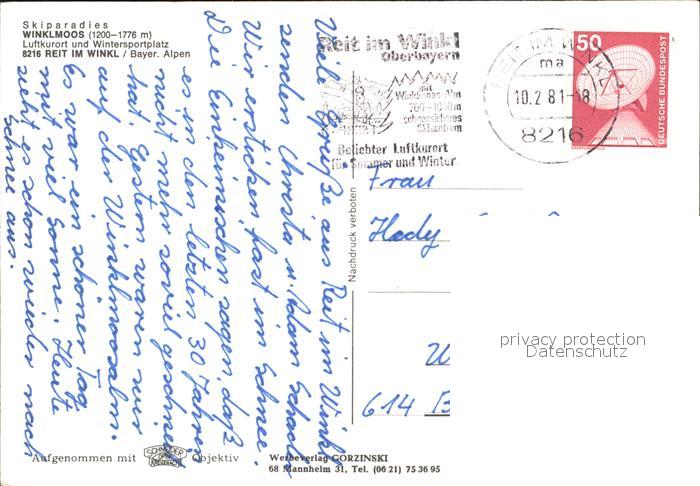 Skiparadies
WINKLMOOS (1200–1776 m)
Luftkurort und Wintersportplatz
8216 REIT IM WINKL / Bayer. Alpen
Viele Grüße aus Reit im Winkl
senden Christa u. Adam
Wir ersticken fast im Schnee.
Die Einheimischen sagen, daß
es in den letzten 30 Jahren
nicht mehr soviel geschneit
hat. Gestern waren wir
auf der Winklmoosalm.
Es war ein schöner Tag
mit viel Sonne. Heute
sieht es schon wieder nach
Schnee aus.
Reit im Winkl
Oberbayern
mit
Winklmoos-Alm
700-1800m
schneesicheres
Skizentrum
Beliebter Luftkurort
für Sommer und Winter
REIT IM WINKL
ma
10.2.81-18
8216
50
DEUTSCHE BUNDESPOST
Frau
Hedy
W
614 B
Nachdruck verboten
privacy protection
Datenschutz
Aufgenommen mit SCHNEIDER KREUZNACH Objektiv
Werbeverlag GORZINSKI
68 Mannheim 31, Tel. (06 21) 75 36 95